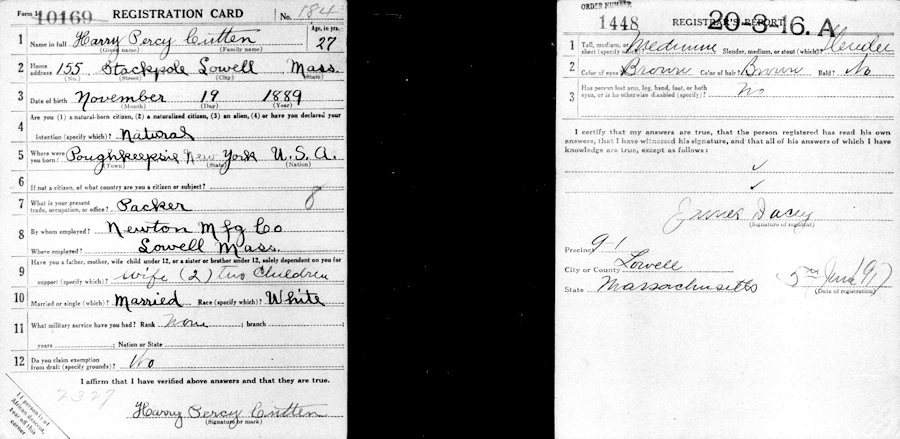 Form 1 10169 REGISTRATION CARD No. 184
1 Name in full Harry Percy Cutten Age, in yrs. 27
(Given name) (Family name)
2 Home address 155 Stackpole Lowell Mass.
(No.) (Street) (City) (State)
3 Date of birth November 19 1889
(Month) (Day) (Year)
4 Are you (1) a natural-born citizen, (2) a naturalized citizen, (3) an alien, (4) or have you declared your
intention (specify which)? Natural
5 Where were you born? Poughkeepsie New York U.S.A.
(Town) (State) (Nation)
6 If not a citizen, of what country are you a citizen or subject?
7 What is your present trade, occupation, or office? Packer 8
8 By whom employed? Newton Mfg Co
Where employed? Lowell Mass.
9 Have you a father, mother, wife child under 12, or a sister or brother under 12, solely dependent on you for
support (specify which)? Wife (2) two Children
10 Married or single (which)? Married Race (specify which)? White
11 What military service have you had? Rank None ; branch ;
years ; Nation or State
12 Do you claim exemption from draft (specify grounds)? No
I affirm that I have verified above answers and that they are true.
2327
Harry Percy Cutten
(Signature or mark)
If person is of
African descent,
tear off this
corner
ORDER NUMBER
1448 REGISTRAR'S REPORT 20-3-16. A
1 Tall, medium, or short (specify which)? Medium Slender, medium, or stout (which)? Slender
2 Color of eyes? Brown Color of hair? Brown Bald? No
3 Has person lost arm, leg, hand, foot, or both
eyes, or is he otherwise disabled (specify)? No
I certify that my answers are true, that the person registered has read his own
answers, that I have witnessed his signature, and that all of his answers of which I have
knowledge are true, except as follows:
James Dacey
(Signature of registrar)
Precinct 9-1
City or County Lowell
State Massachusetts 5 June 1917
(Date of registration)